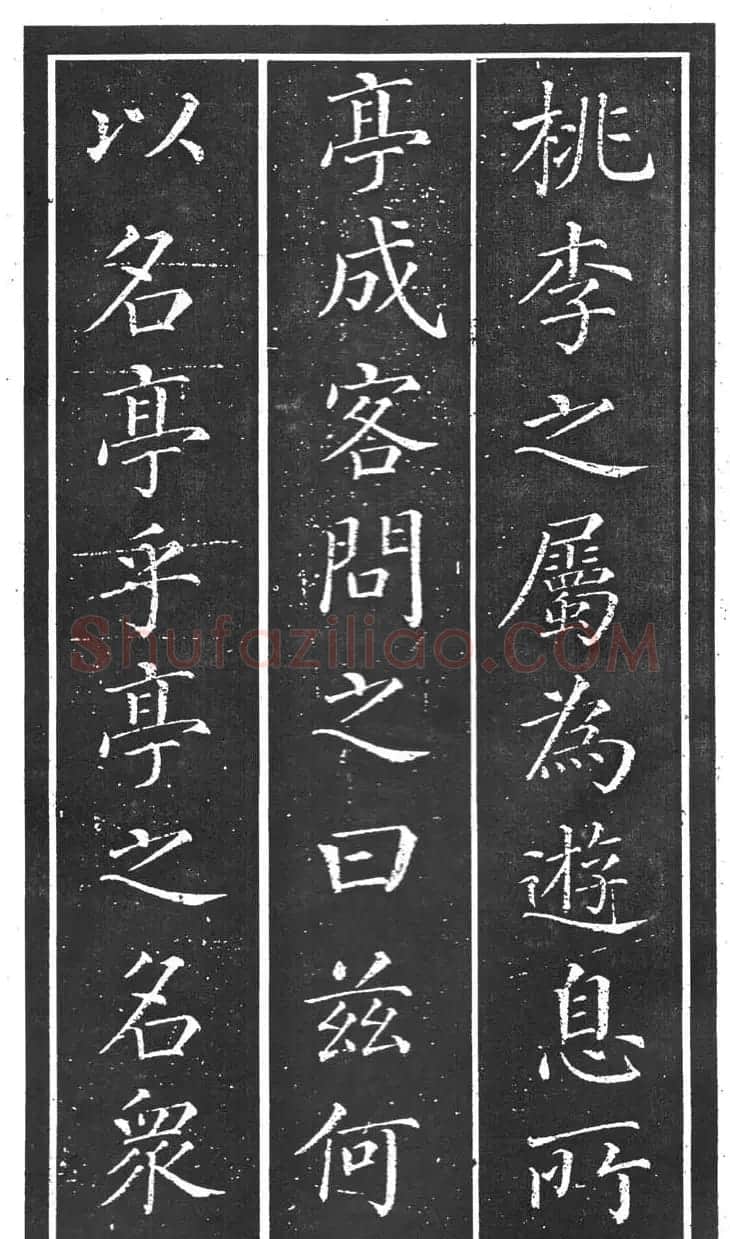 桃李之屬為遊息所
亭成客問之曰茲何
以名亭乎亭之名眾
Shufaziliao.COM